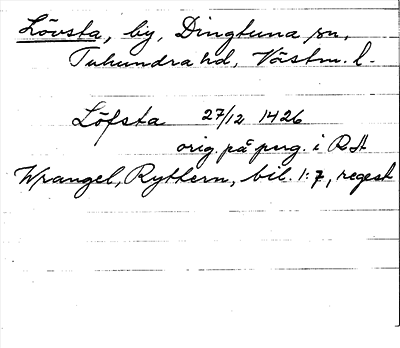 Lövsta, by, Dingtuna sn,
Tuhundra hd, Västm. l.
Löfsta 27/12 1426
orig. på perg. i RA
Wrangel, Ryttern, bil. 1:7, regest